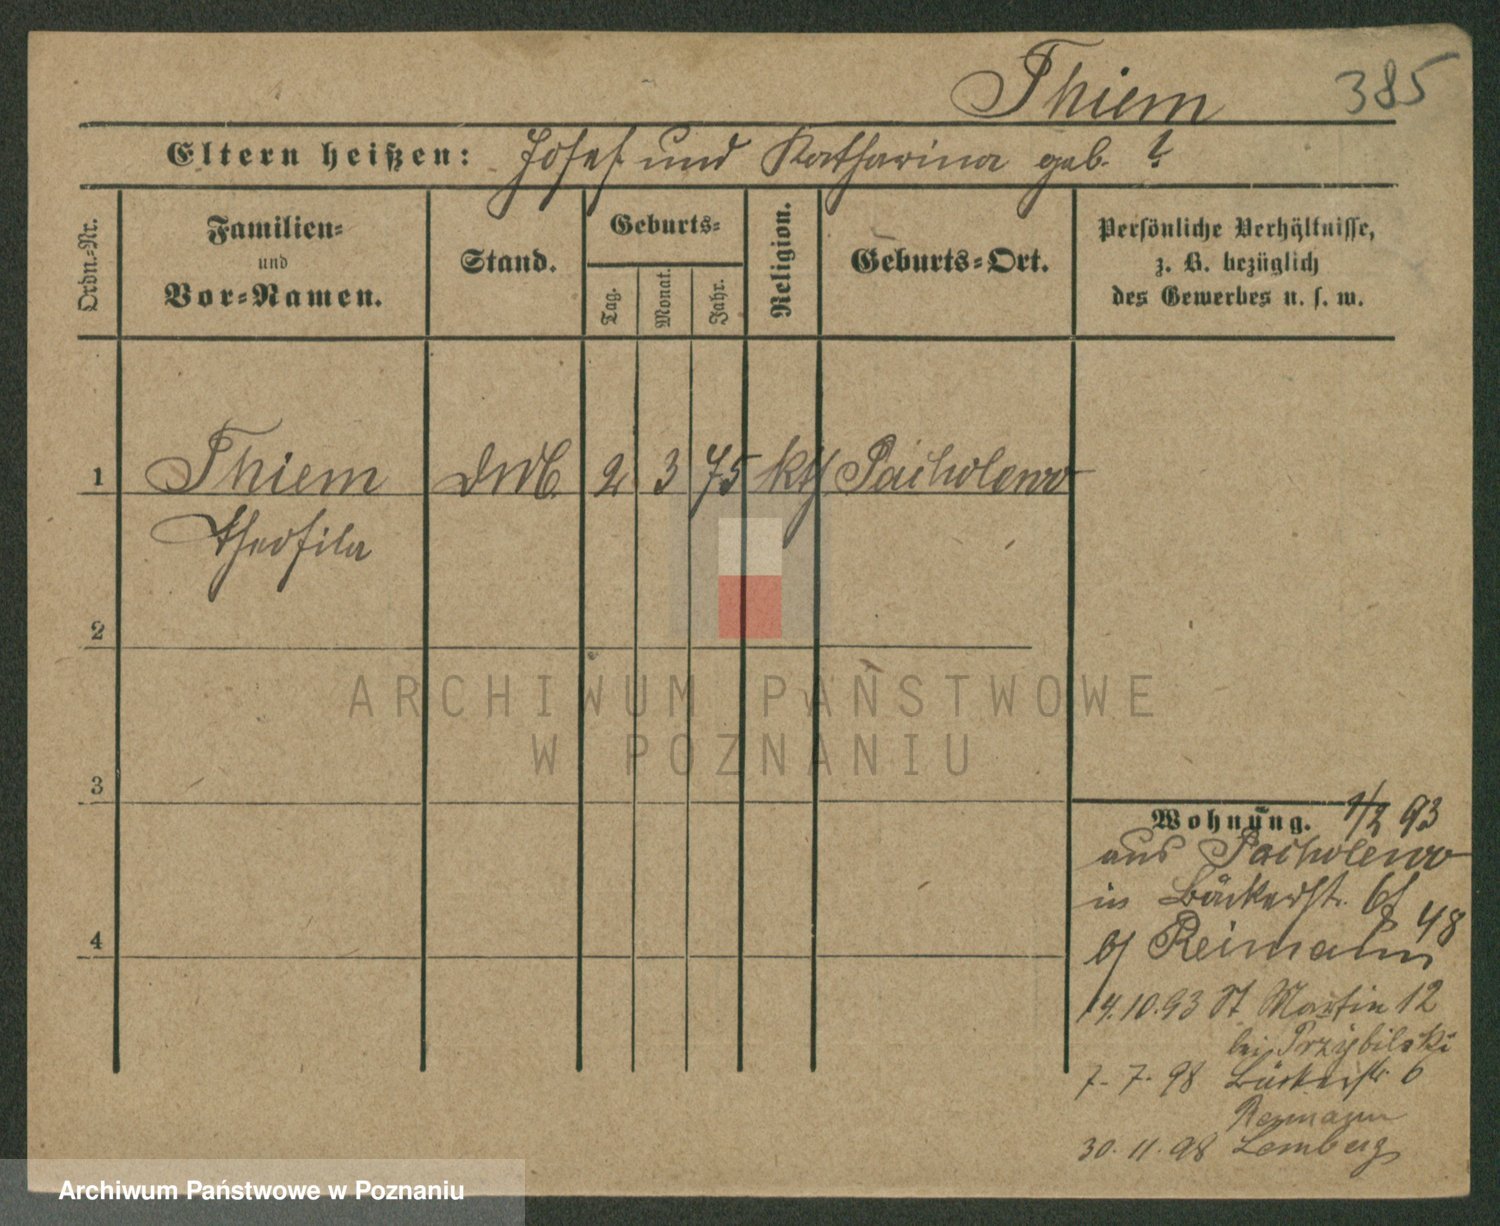 Thiem 385
Eltern heißen: Josef und Katharina geb. ?
Ordn.-Nr.
Familien-
und
Vor-Namen.
Stand.
Geburts-
Tag.
Monat.
Jahr.
Religion.
Geburts-Ort.
Persönliche Verhältnisse,
z. B. bezüglich
des Gewerbes u. s. w.
1 Thiem 2 3 75 kth Pacholewo
Theofila
2
3
4
Wohnung. 1/2 93
aus Pacholewo
in Bäckerstr. 6
48
b/ Reimann
14.10.93 St Martin 12
bei Przybilski
7. 7. 98 Bäckerstr. 6
Reimann
30. 11. 98 Lemberg
ARCHIWUM PAŃSTWOWE
W POZNANIU
Archiwum Państwowe w Poznaniu